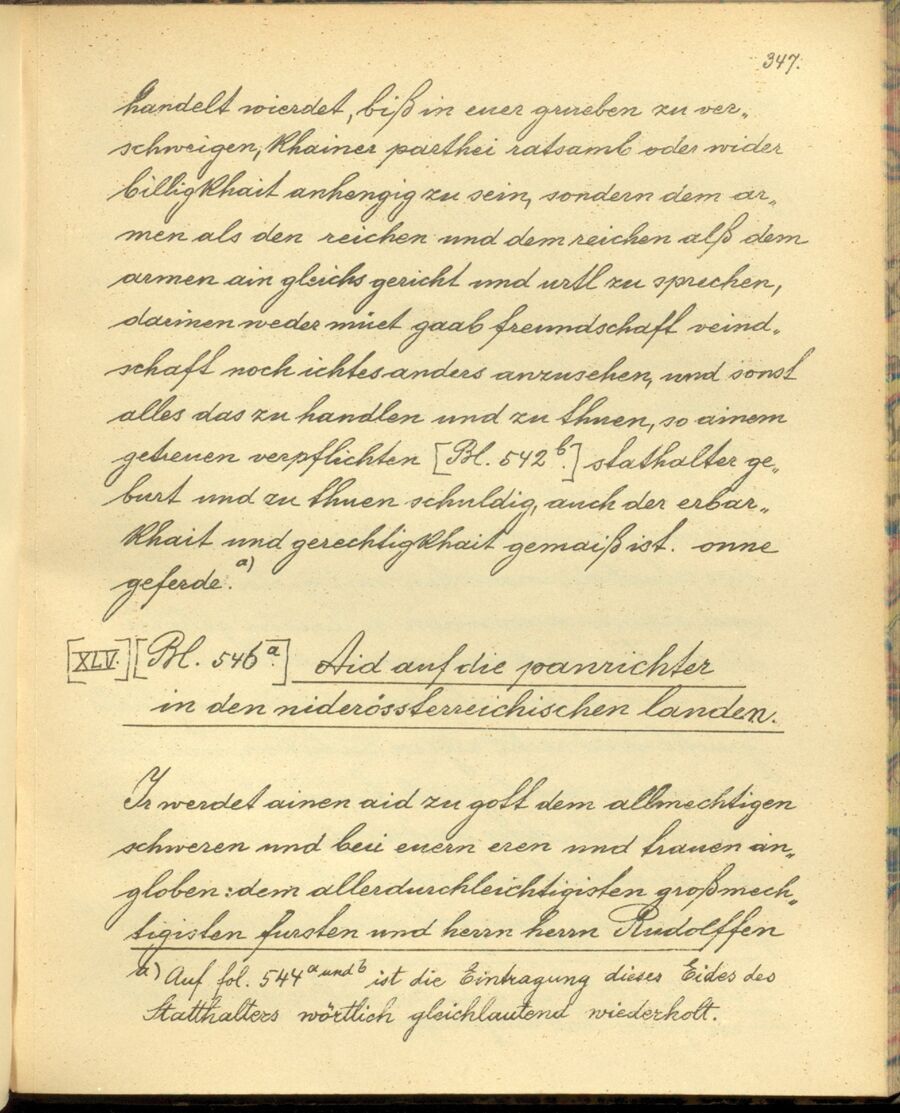 347.
handelt wierdet, biß in euer grueben zu ver„
schweigen, khainer parthei ratsamb oder wider
billigkhait anhengig zu sein, sondern dem ar„
men als den reichen und dem reichen alß dem
armen ain gleichs gericht und urtl zu sprechen,
darinen weder müet gaab freundschaft veind„
schaft noch ichtes anders anzusehen, und sonst
alles das zu handlen und zu thuen, so ainem
getreuen verpflichten [Bl. 542b.] stathalter ge„
burt und zu thuen schuldig, auch der erbar„
khait und gerechtigkhait gemaiß ist. onne
geferde.a)
[XLV.] [Bl. 546a.] Aid auf die panrichter
in den niderössterreichischen landen.
Ir werdet ainen aid zu gott dem allmechtigen
schweren und beii euern eren und trauen an„
globen: dem allerdurchleichtigisten großmech„
tigisten fursten und herrn herrn Rudolffen
a) Auf fol. 544a und b ist die Eintragung dieses Eides des
Statthalters wörtlich gleichlautend wiederholt.